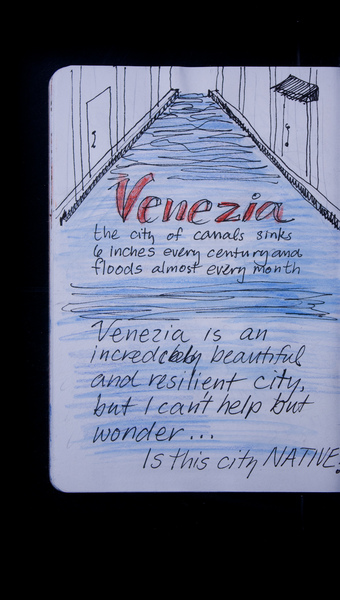 Venezia
the city of canals sinks
6 inches every century and
floods almost every month
Venezia is an
incredibly beautiful
and resilient city,
but I can't help but
wonder...
Is this city NATIVE?